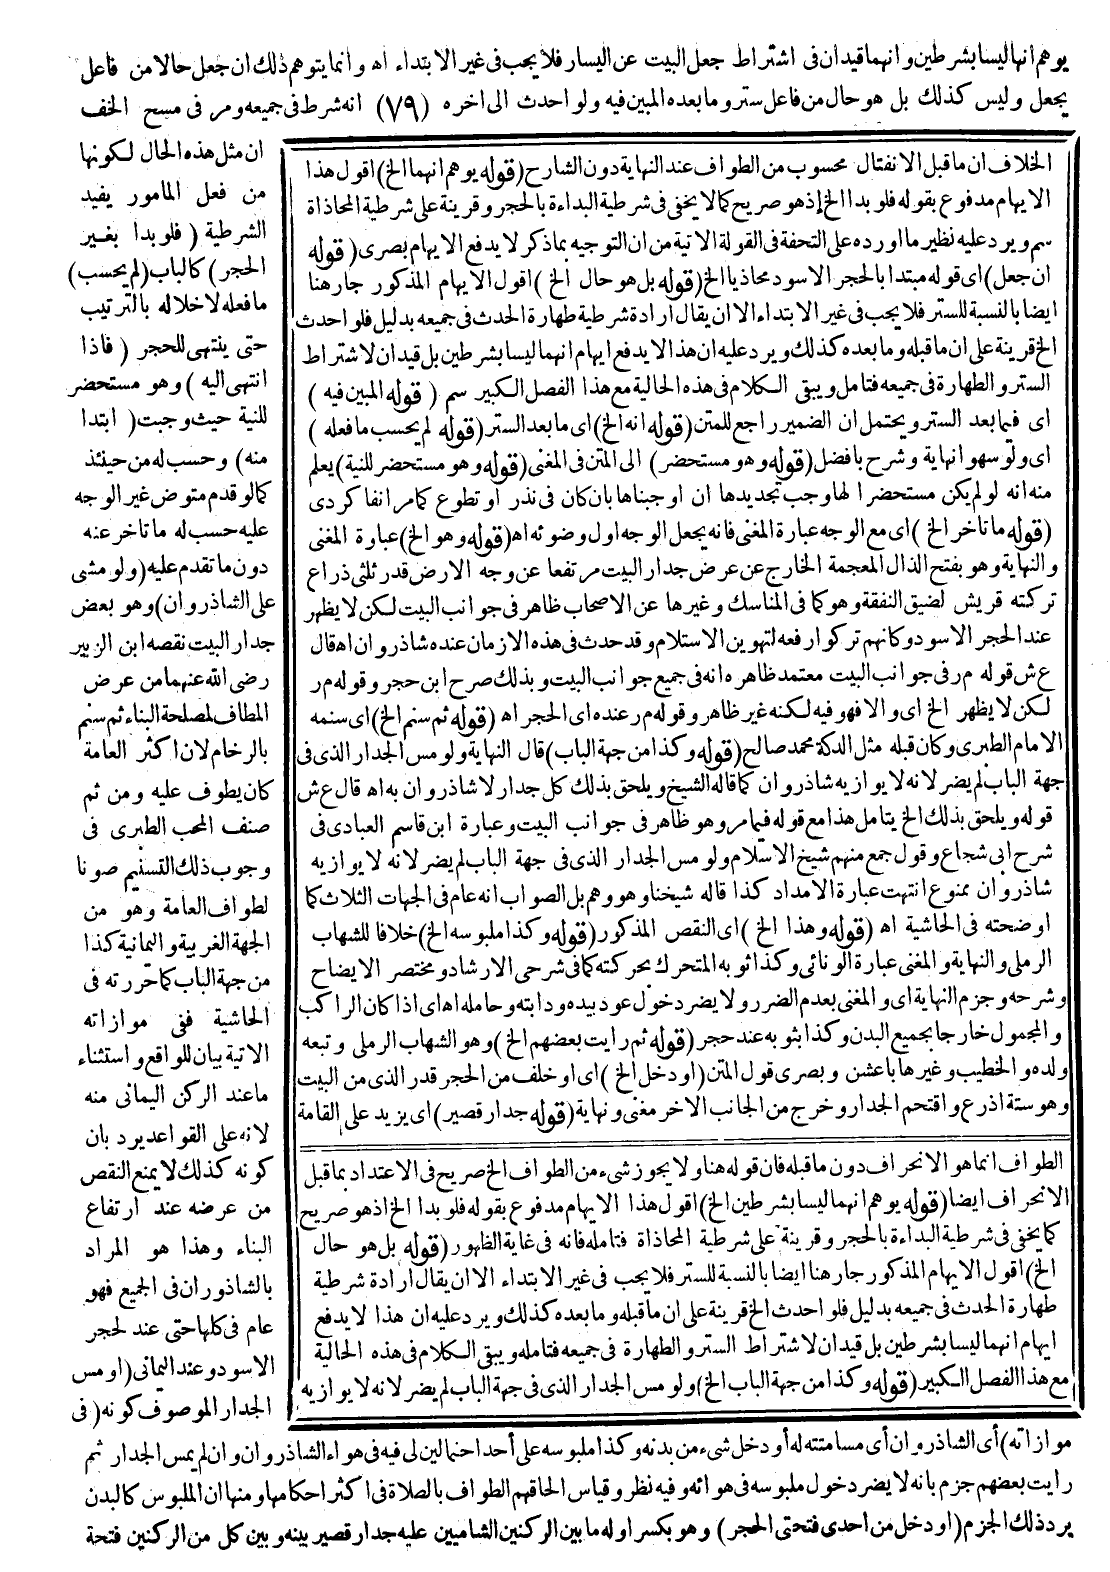 يوهم انها ليسا بشرطين وانهما قيدان فى اشتراط جعل البيت عن اليسار فلا يجب فى غير الابتداء اه وانما يتوهم ذلك ان جعل حالا من فاعل
يجعل وليس كذلك بل هو حال من فاعل ستر وما بعده المبين فيه ولو احدث الى اخره (٧٩) انه شرط فى جميعه ومر فى مسح الخف
ان مثل هذه الحال لكونها
من فعل المامور يفيد
الشرطية (فلو بدا بغير
الحجر) كالباب (لم يحسب)
ما فعله لاخلاله بالترتيب
حتى ينتهى للحجر (فاذا
انتهى اليه) وهو مستحضر
للنية حيث وجبت (ابتدا
منه) وحسب له من حينئذ
كما لو قدم متوض غير الوجه
عليه حسب له ما تاخر عنه
دون ما تقدم عليه (ولو مشى
على الشاذروان) وهو بعض
جدار البيت نقصه ابن الزبير
رضى الله عنهما من عرض
المطاف لمصلحة البناء ثم سنم
بالرخام لان اكثر العامة
كان يطوف عليه ومن ثم
صنف المحب الطبرى فى
وجوب ذلك التسنيم صونا
لطواف العامة وهو من
الجهة الغربية واليمانية كذا
من جهة الباب كما حررته فى
الحاشية ففى موازاته
الاتية بيان للواقع واستثناء
ما عند الركن اليمانى منه
لانه على القواعد يرد بان
كونه كذلك لا يمنع النقص
من عرضه عند ارتفاع
البناء وهذا هو المراد
بالشاذوران فى الجميع فهو
عام فى كلها حتى عند لحجر
الاسود وعند اليمانى (او مس
الجدار الموصوف كونه (فى
موازاته) أى الشاذروان أى مسامتته له أو دخل شىء من بدنه وكذا ملبوسه على أحد احتمالين لى فيه فى هواء الشاذروان وان لم يمس الجدار ثم
رايت بعضهم جزم بانه لا يضر دخول ملبوسه فى هوائه وفيه نظر وقياس الحاقهم الطواف بالصلاة فى اكثر احكامها ومنها ان الملبوس كالبدن
يرد ذلك الجزم (او دخل من احدى فتحتى الحجر) وهو بكسر اوله ما بين الركنين الشاميين عليه جدار قصير بينه وبين كل من الركنين فتحة
الخلاف ان ما قبل الانفتال محسوب من الطواف عند النهاية دون الشارح (قوله يوهم انهما الخ) اقول هذا
الايهام مدفوع بقوله فلو بدا الخ إذ هو صريح كما لا يخفى فى شرطية البداءة بالحجر وقرينة على شرطية المحاذاة
سم ويرد عليه نظير ما اورده على التحفة فى القولة الاتية من ان التوجيه بما ذكر لا يدفع الايهام بصرى (قوله
ان جعل) اى قوله مبتدا بالحجر الاسود محاذيا الخ (قوله بل هو حال الخ) اقول الايهام المذكور جار هنا
ايضا بالنسبة للستر فلا يجب فى غير الابتداء الا ان يقال ارادة شرطية طهارة الحدث فى جميعه بدليل فلو احدث
الخ قرينة على ان ما قبله وما بعده كذلك ويرد عليه ان هذا لا يدفع ايهام انهما ليسا بشرطين بل قيدان لاشتراط
الستر والطهارة فى جميعه فتامل ويبقى الكلام فى هذه الحالية مع هذا الفصل الكبير سم (قوله المبين فيه)
اى فيما بعد الستر ويحتمل ان الضمير راجع للمتن (قوله انه الخ) اى ما بعد الستر (قوله لم يحسب ما فعله)
اى ولو سهوا نهاية وشرح بافضل (قوله وهو مستحضر) الى المتن فى المغنى (قوله وهو مستحضر للنية) يعلم
منه انه لو لم يكن مستحضرا لها وجب تجديدها ان اوجبناها بان كان فى نذر او تطوع كما مر انفا كردى
(قوله ما تاخر الخ) اى مع الوجه عبارة المغنى فانه يجعل الوجه اول وضوئه اه (قوله وهو الخ) عبارة المغنى
والنهاية وهو بفتح الذال المعجمة الخارج عن عرض جدار البيت مرتفعا عن وجه الارض قدر ثلثى ذراع
تركته قريش لضيق النفقة وهو كما فى المناسك وغيرها عن الاصحاب ظاهر فى جوانب البيت لكن لا يظهر
عند الحجر الاسود وكانهم تركوا رفعه لتهوين الاستلام وقد حدث فى هذه الازمان عنده شاذروان اه قال
ع ش قوله مر فى جوانب البيت معتمد ظاهره انه فى جميع جوانب البيت وبذلك صرح ابن حجر وقوله مر
لكن لا يظهر الخ اى والا فهو فيه لكنه غير ظاهر وقوله مر عنده اى الحجر اه (قوله ثم سنم الخ) اى سنمه
الامام الطبرى وكان قبله مثل الدكة محمد صالح (قوله وكذا من جهة الباب) قال النهاية ولو مس الجدار الذى فى
جهة الباب لم يضر لانه لا يوازيه شاذروان كما قاله الشيخ ويلحق بذلك كل جدار لا شاذروان به اه قال ع ش
قوله ويلحق بذلك الخ يتامل هذا مع قوله فيما مر وهو ظاهر فى جوانب البيت وعبارة ابن قاسم العبادى فى
شرح ابى شجاع وقول جمع منهم شيخ الاسلام ولو مس الجدار الذى فى جهة الباب لم يضر لانه لا يوازيه
شاذروان ممنوع انتهت عبارة الامداد كذا قاله شيخنا وهو وهم بل الصواب انه عام فى الجهات الثلاث كما
اوضحته فى الحاشية اه (قوله وهذا الخ) اى النقص المذكور (قوله وكذا ملبوسه الخ) خلافا للشهاب
الرملى والنهاية والمغنى عبارة الونائى وكذا ثوبه المتحرك بحركته كما فى شرحى الارشاد ومختصر الايضاح
وشرحه وجزم النهاية اى والمغنى بعدم الضرر ولا يضر دخول عود بيده ودابته وحامله اه اى اذا كان الراكب
والمحمول خارجا بجميع البدن وكذا بثوبه عند حجر (قوله ثم رايت بعضهم الخ) وهو الشهاب الرملى وتبعه
ولده والخطيب وغيرها باعشن وبصرى قول المتن (او دخل الخ) اى او خلف من الحجر قدر الذى من البيت
وهو ستة اذرع واقتحم الجدار وخرج من الجانب الاخر مغنى ونهاية (قوله جدار قصير) اى يزيد على القامة
الطواف انما هو الانحراف دون ما قبله فان قوله هنا ولا يجوز شىء من الطواف الخ صريح فى الاعتداد بما قبل
الانحراف ايضا (قوله يوهم انهما ليسا بشرطين الخ) اقول هذا الايهام مدفوع بقوله فلو بدا الخ اذ هو صريح
كما يخفى فى شرطية البداءة بالحجر وقرينة على شرطية المحاذاة فتامله فانه فى غاية الظهور (قوله بل هو حال
الخ) اقول الايهام المذكور جار هنا ايضا بالنسبة للستر فلا يجب فى غير الابتداء الا ان يقال ارادة شرطية
طهارة الحدث فى جميعه بدليل فلو احدث الخ قرينة على ان ما قبله وما بعده كذلك ويرد عليه ان هذا لا يدفع
ايهام انهما ليسا بشرطين بل قيدان لاشتراط الستر والطهارة فى جميعه فتامله ويبقى الكلام فى هذه الحالية
مع هذا الفصل الكبير (قوله وكذا من جهة الباب الخ) ولو مس الجدار الذى فى جهة الباب لم يضر لانه لا يوازيه